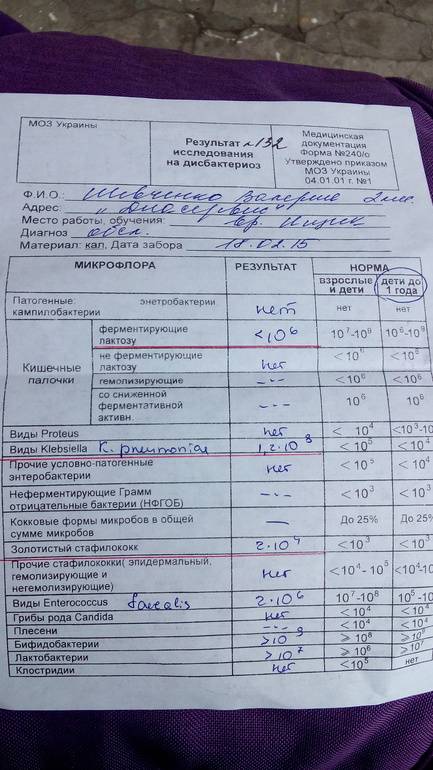 МОЗ Украины
Результат №132
исследования
на дисбактериоз
Медицинская
документация
Форма №240/о
Утверждено приказом
МОЗ Украины
04.01.01 г. №1
Ф.И.О.: Шевченко Валерия 2 мес.
Адрес:
Место работы, обучения: вр.
Диагноз обсл.
Материал: кал, Дата забора 18.02.15
МИКРОФЛОРА РЕЗУЛЬТАТ НОРМА
взрослые и дети дети до 1 года
Патогенные: энетробактерии
кампилобактерии нет нет нет
Кишечные палочки
ферментирующие лактозу <10⁶ 10⁷-10⁹ 10⁶-10⁹
не ферментирующие лактозу нет <10⁶ <10⁶
гемолизирующие --- <10⁶ <10⁶
со сниженной ферментативной активн. --- 10⁶ 10⁶
Виды Proteus нет < 10⁴ <10³-10
Виды Klebsiella K. pneumoniae 1,2·10⁸ < 10⁵ < 10⁴
Прочие условно-патогенные энтеробактерии нет < 10⁵ < 10⁴
Неферментирующие Грамм отрицательные бактерии (НФГОБ) --- < 10³ < 10³
Кокковые формы микробов в общей сумме микробов — До 25% До 25%
Золотистый стафилококк 2·10⁴ <10³ <10³
Прочие стафилококки( эпидермальный, гемолизирующие и негемолизирующие) нет <10⁴- 10⁵ <10⁴-10
Виды Enterococcus faecalis 2·10⁶ 10⁷-10⁸ 10⁵-10
Грибы рода Candida нет <10⁴ <10⁴
Плесени --- <10⁴ <10⁴
Бифидобактерии >10⁹ ⩾ 10⁸ ⩾10⁹
Лактобактерии >10⁷ ⩾ 10⁶ ⩾10⁷
Клостридии нет <10⁵ нет